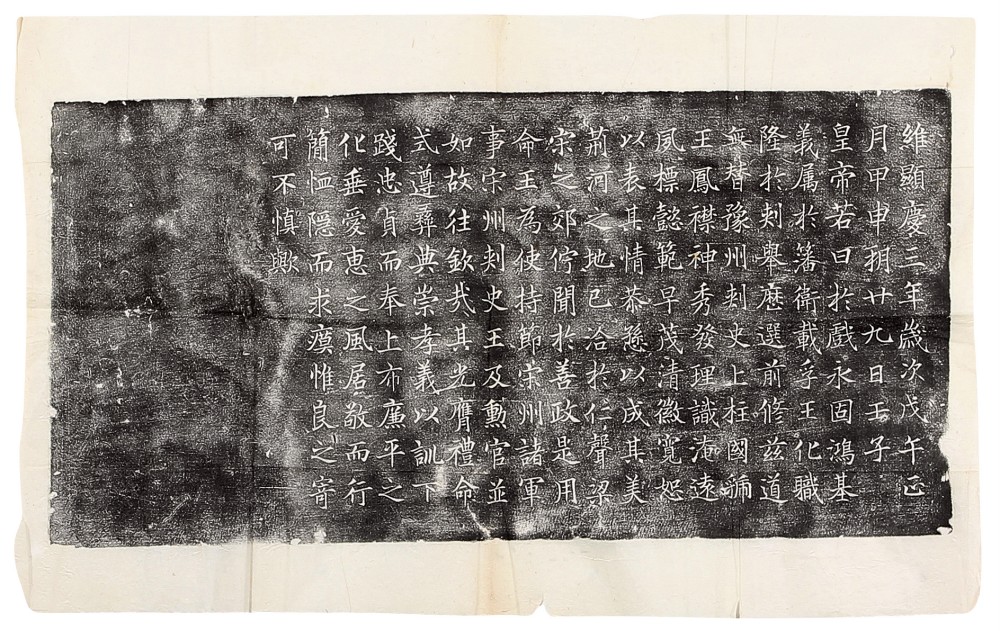 維顯慶三年歲次戊午正
月甲申朔廿九日壬子
皇帝若曰於戲永固鴻基
義属於籓衛載孚王化職
隆於刾舉歷選前修兹道
無替豫州刾史上柱國虢
王鳳襟神秀發理識淹遠
風標懿範早茂清徽寬恕
以表其情恭慤以成其美
荊河之地已洽於仁聲梁
宋之郊佇聞於善政是用
命王為使持節宋州諸軍
事宋州刾史王及勳官並
如故往欽哉其光膺禮命
式遵彝典崇孝義以訓下
踐忠貞而奉上布廉平之
化垂愛恵之風居敬而行
簡恤隠而求瘼惟良之寄
可不慎歟